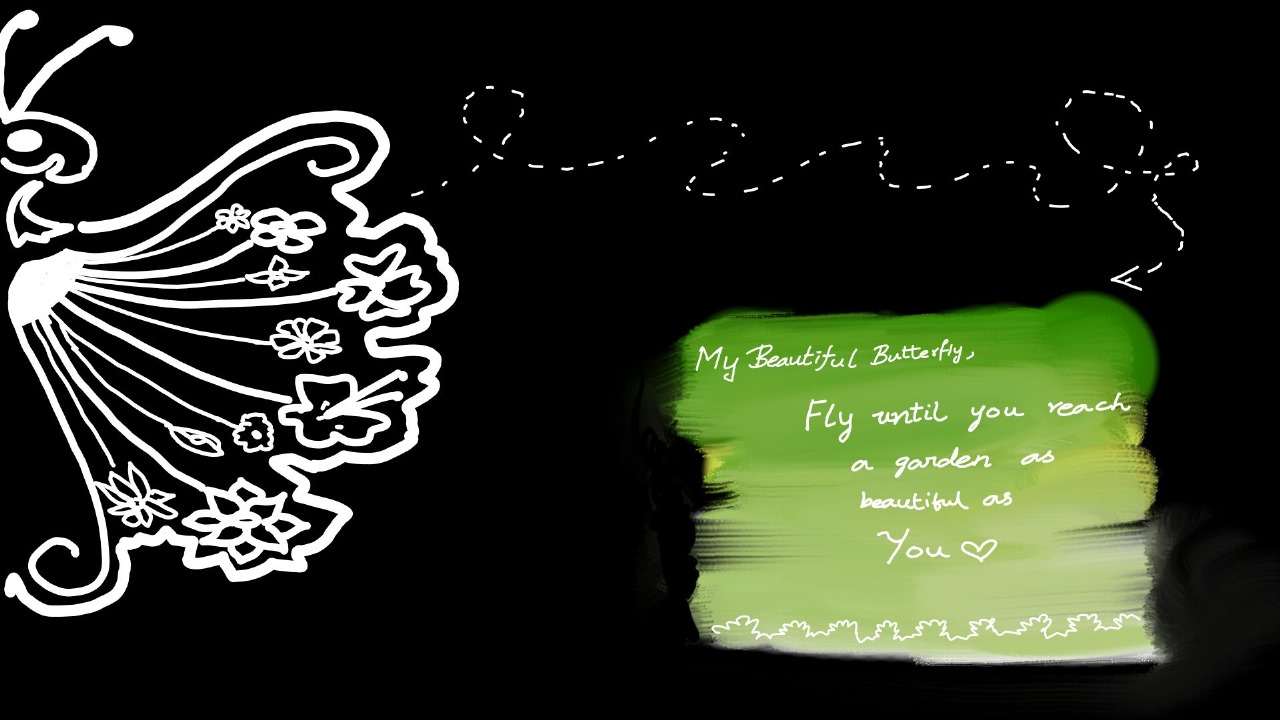 My Beautiful Butterfly,
Fly until you reach
a garden as
beautiful as
You ♡